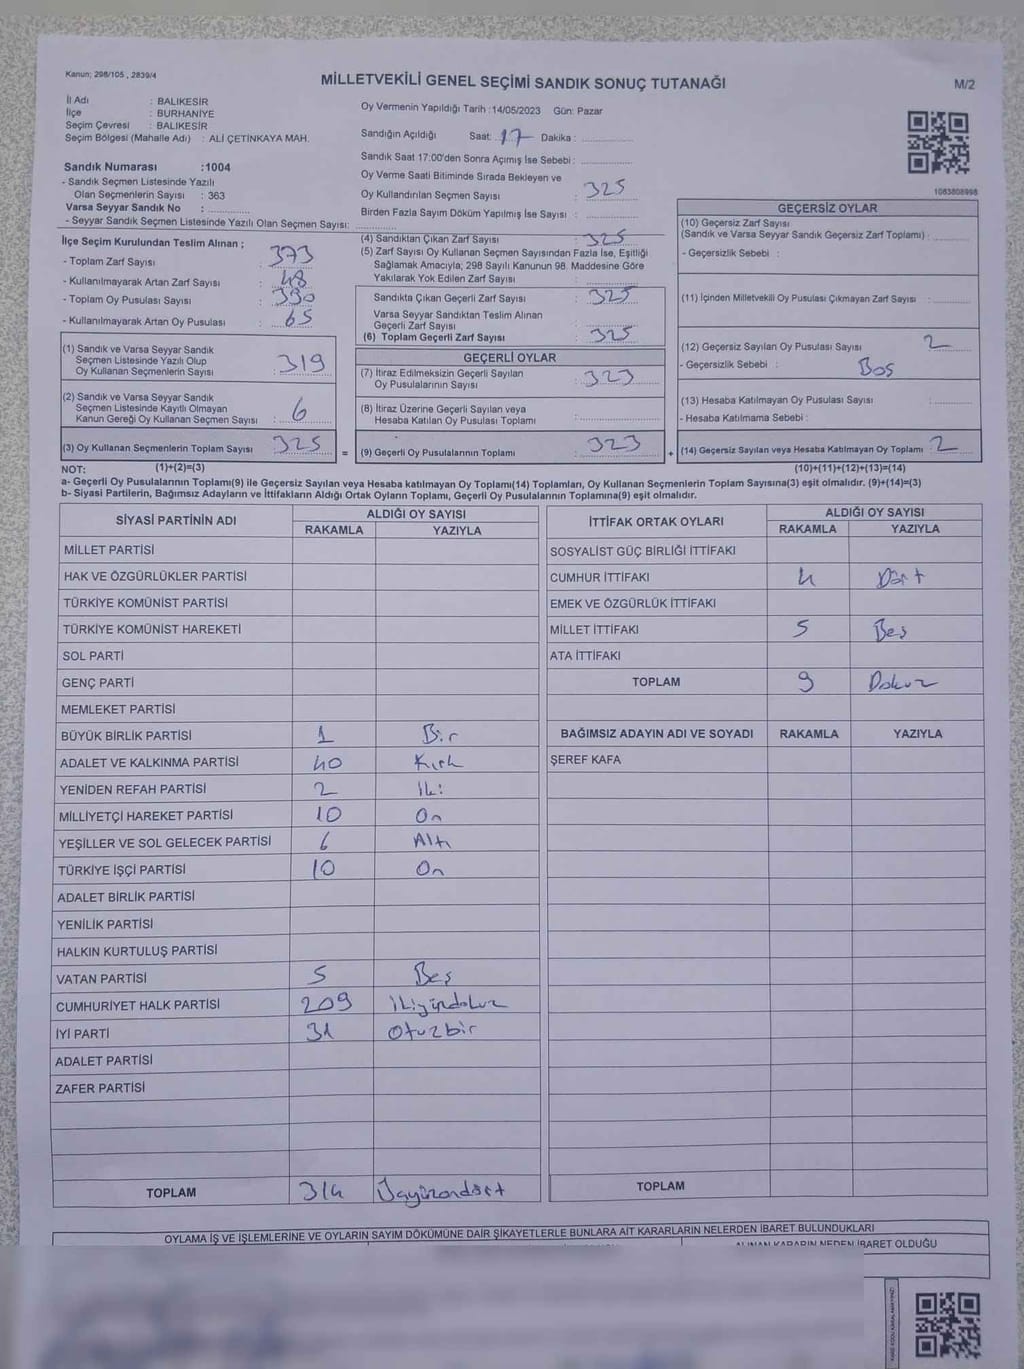 Kanun; 298/105 , 2839/4
MİLLETVEKİLİ GENEL SEÇİMİ SANDIK SONUÇ TUTANAĞI
M/2
İl Adı : BALIKESİR
İlçe : BURHANİYE
Seçim Çevresi : BALIKESİR
Seçim Bölgesi (Mahalle Adı) : ALİ ÇETİNKAYA MAH.
Sandık Numarası :1004
- Sandık Seçmen Listesinde Yazılı
Olan Seçmenlerin Sayısı : 363
Varsa Seyyar Sandık No :
- Seyyar Sandık Seçmen Listesinde Yazılı Olan Seçmen Sayısı:
Oy Vermenin Yapıldığı Tarih :14/05/2023 Gün: Pazar
Sandığın Açıldığı Saat: 17 Dakika :
Sandık Saat 17:00'den Sonra Açımış İse Sebebi :
Oy Verme Saati Bitiminde Sırada Bekleyen ve
Oy Kullandırılan Seçmen Sayısı : 325
Birden Fazla Sayım Döküm Yapılmış İse Sayısı :
1083808998
İlçe Seçim Kurulundan Teslim Alınan ;
- Toplam Zarf Sayısı : 373
- Kullanılmayarak Artan Zarf Sayısı : 48
- Toplam Oy Pusulası Sayısı : 390
- Kullanılmayarak Artan Oy Pusulası : 65
(1) Sandık ve Varsa Seyyar Sandık
Seçmen Listesinde Yazılı Olup
Oy Kullanan Seçmenlerin Sayısı : 319
(2) Sandık ve Varsa Seyyar Sandık
Seçmen Listesinde Kayıtlı Olmayan
Kanun Gereği Oy Kullanan Seçmen Sayısı : 6
(3) Oy Kullanan Seçmenlerin Toplam Sayısı : 325
(4) Sandıktan Çıkan Zarf Sayısı : 325
(5) Zarf Sayısı Oy Kullanan Seçmen Sayısından Fazla İse, Eşitliği
Sağlamak Amacıyla; 298 Sayılı Kanunun 98. Maddesine Göre
Yakılarak Yok Edilen Zarf Sayısı :
Sandıkta Çıkan Geçerli Zarf Sayısı : 325
Varsa Seyyar Sandıktan Teslim Alınan
Geçerli Zarf Sayısı :
(6) Toplam Geçerli Zarf Sayısı : 325
GEÇERLİ OYLAR
(7) İtiraz Edilmeksizin Geçerli Sayılan
Oy Pusulalarının Sayısı : 323
(8) İtiraz Üzerine Geçerli Sayılan veya
Hesaba Katılan Oy Pusulası Toplamı :
= (9) Geçerli Oy Pusulalarının Toplamı : 323
GEÇERSİZ OYLAR
(10) Geçersiz Zarf Sayısı
(Sandık ve Varsa Seyyar Sandık Geçersiz Zarf Toplamı) :
- Geçersizlik Sebebi :
(11) İçinden Milletvekili Oy Pusulası Çıkmayan Zarf Sayısı :
(12) Geçersiz Sayılan Oy Pusulası Sayısı : 2
- Geçersizlik Sebebi : Boş
(13) Hesaba Katılmayan Oy Pusulası Sayısı :
- Hesaba Katılmama Sebebi :
+ (14) Geçersiz Sayılan veya Hesaba Katılmayan Oy Toplamı : 2
NOT: (1)+(2)=(3)
(10)+(11)+(12)+(13)=(14)
a- Geçerli Oy Pusulalarının Toplamı(9) ile Geçersiz Sayılan veya Hesaba katılmayan Oy Toplamı(14) Toplamları, Oy Kullanan Seçmenlerin Toplam Sayısına(3) eşit olmalıdır. (9)+(14)=(3)
b- Siyasi Partilerin, Bağımsız Adayların ve İttifakların Aldığı Ortak Oyların Toplamı, Geçerli Oy Pusulalarının Toplamına(9) eşit olmalıdır.
SİYASİ PARTİNİN ADI ALDIĞI OY SAYISI
RAKAMLA YAZIYLA
MİLLET PARTİSİ
HAK VE ÖZGÜRLÜKLER PARTİSİ
TÜRKİYE KOMÜNİST PARTİSİ
TÜRKİYE KOMÜNİST HAREKETİ
SOL PARTİ
GENÇ PARTİ
MEMLEKET PARTİSİ
BÜYÜK BİRLİK PARTİSİ 1 Bir
ADALET VE KALKINMA PARTİSİ 40 Kırk
YENİDEN REFAH PARTİSİ 2 İki
MİLLİYETÇİ HAREKET PARTİSİ 10 On
YEŞİLLER VE SOL GELECEK PARTİSİ 6 Altı
TÜRKİYE İŞÇİ PARTİSİ 10 On
ADALET BİRLİK PARTİSİ
YENİLİK PARTİSİ
HALKIN KURTULUŞ PARTİSİ
VATAN PARTİSİ 5 Beş
CUMHURİYET HALK PARTİSİ 209 ikiyüzdokuz
İYİ PARTİ 31 Otuzbir
ADALET PARTİSİ
ZAFER PARTİSİ
TOPLAM 314 Üçyüzondört
İTTİFAK ORTAK OYLARI ALDIĞI OY SAYISI
RAKAMLA YAZIYLA
SOSYALİST GÜÇ BİRLİĞİ İTTİFAKI
CUMHUR İTTİFAKI 4 Dört
EMEK VE ÖZGÜRLÜK İTTİFAKI
MİLLET İTTİFAKI 5 Beş
ATA İTTİFAKI
TOPLAM 9 Dokuz
BAĞIMSIZ ADAYIN ADI VE SOYADI RAKAMLA YAZIYLA
ŞEREF KAFA
TOPLAM
OYLAMA İŞ VE İŞLEMLERİNE VE OYLARIN SAYIM DÖKÜMÜNE DAİR ŞİKAYETLERLE BUNLARA AİT KARARLARIN NELERDEN İBARET BULUNDUKLARI
ALINAN KARARIN NEDEN İBARET OLDUĞU